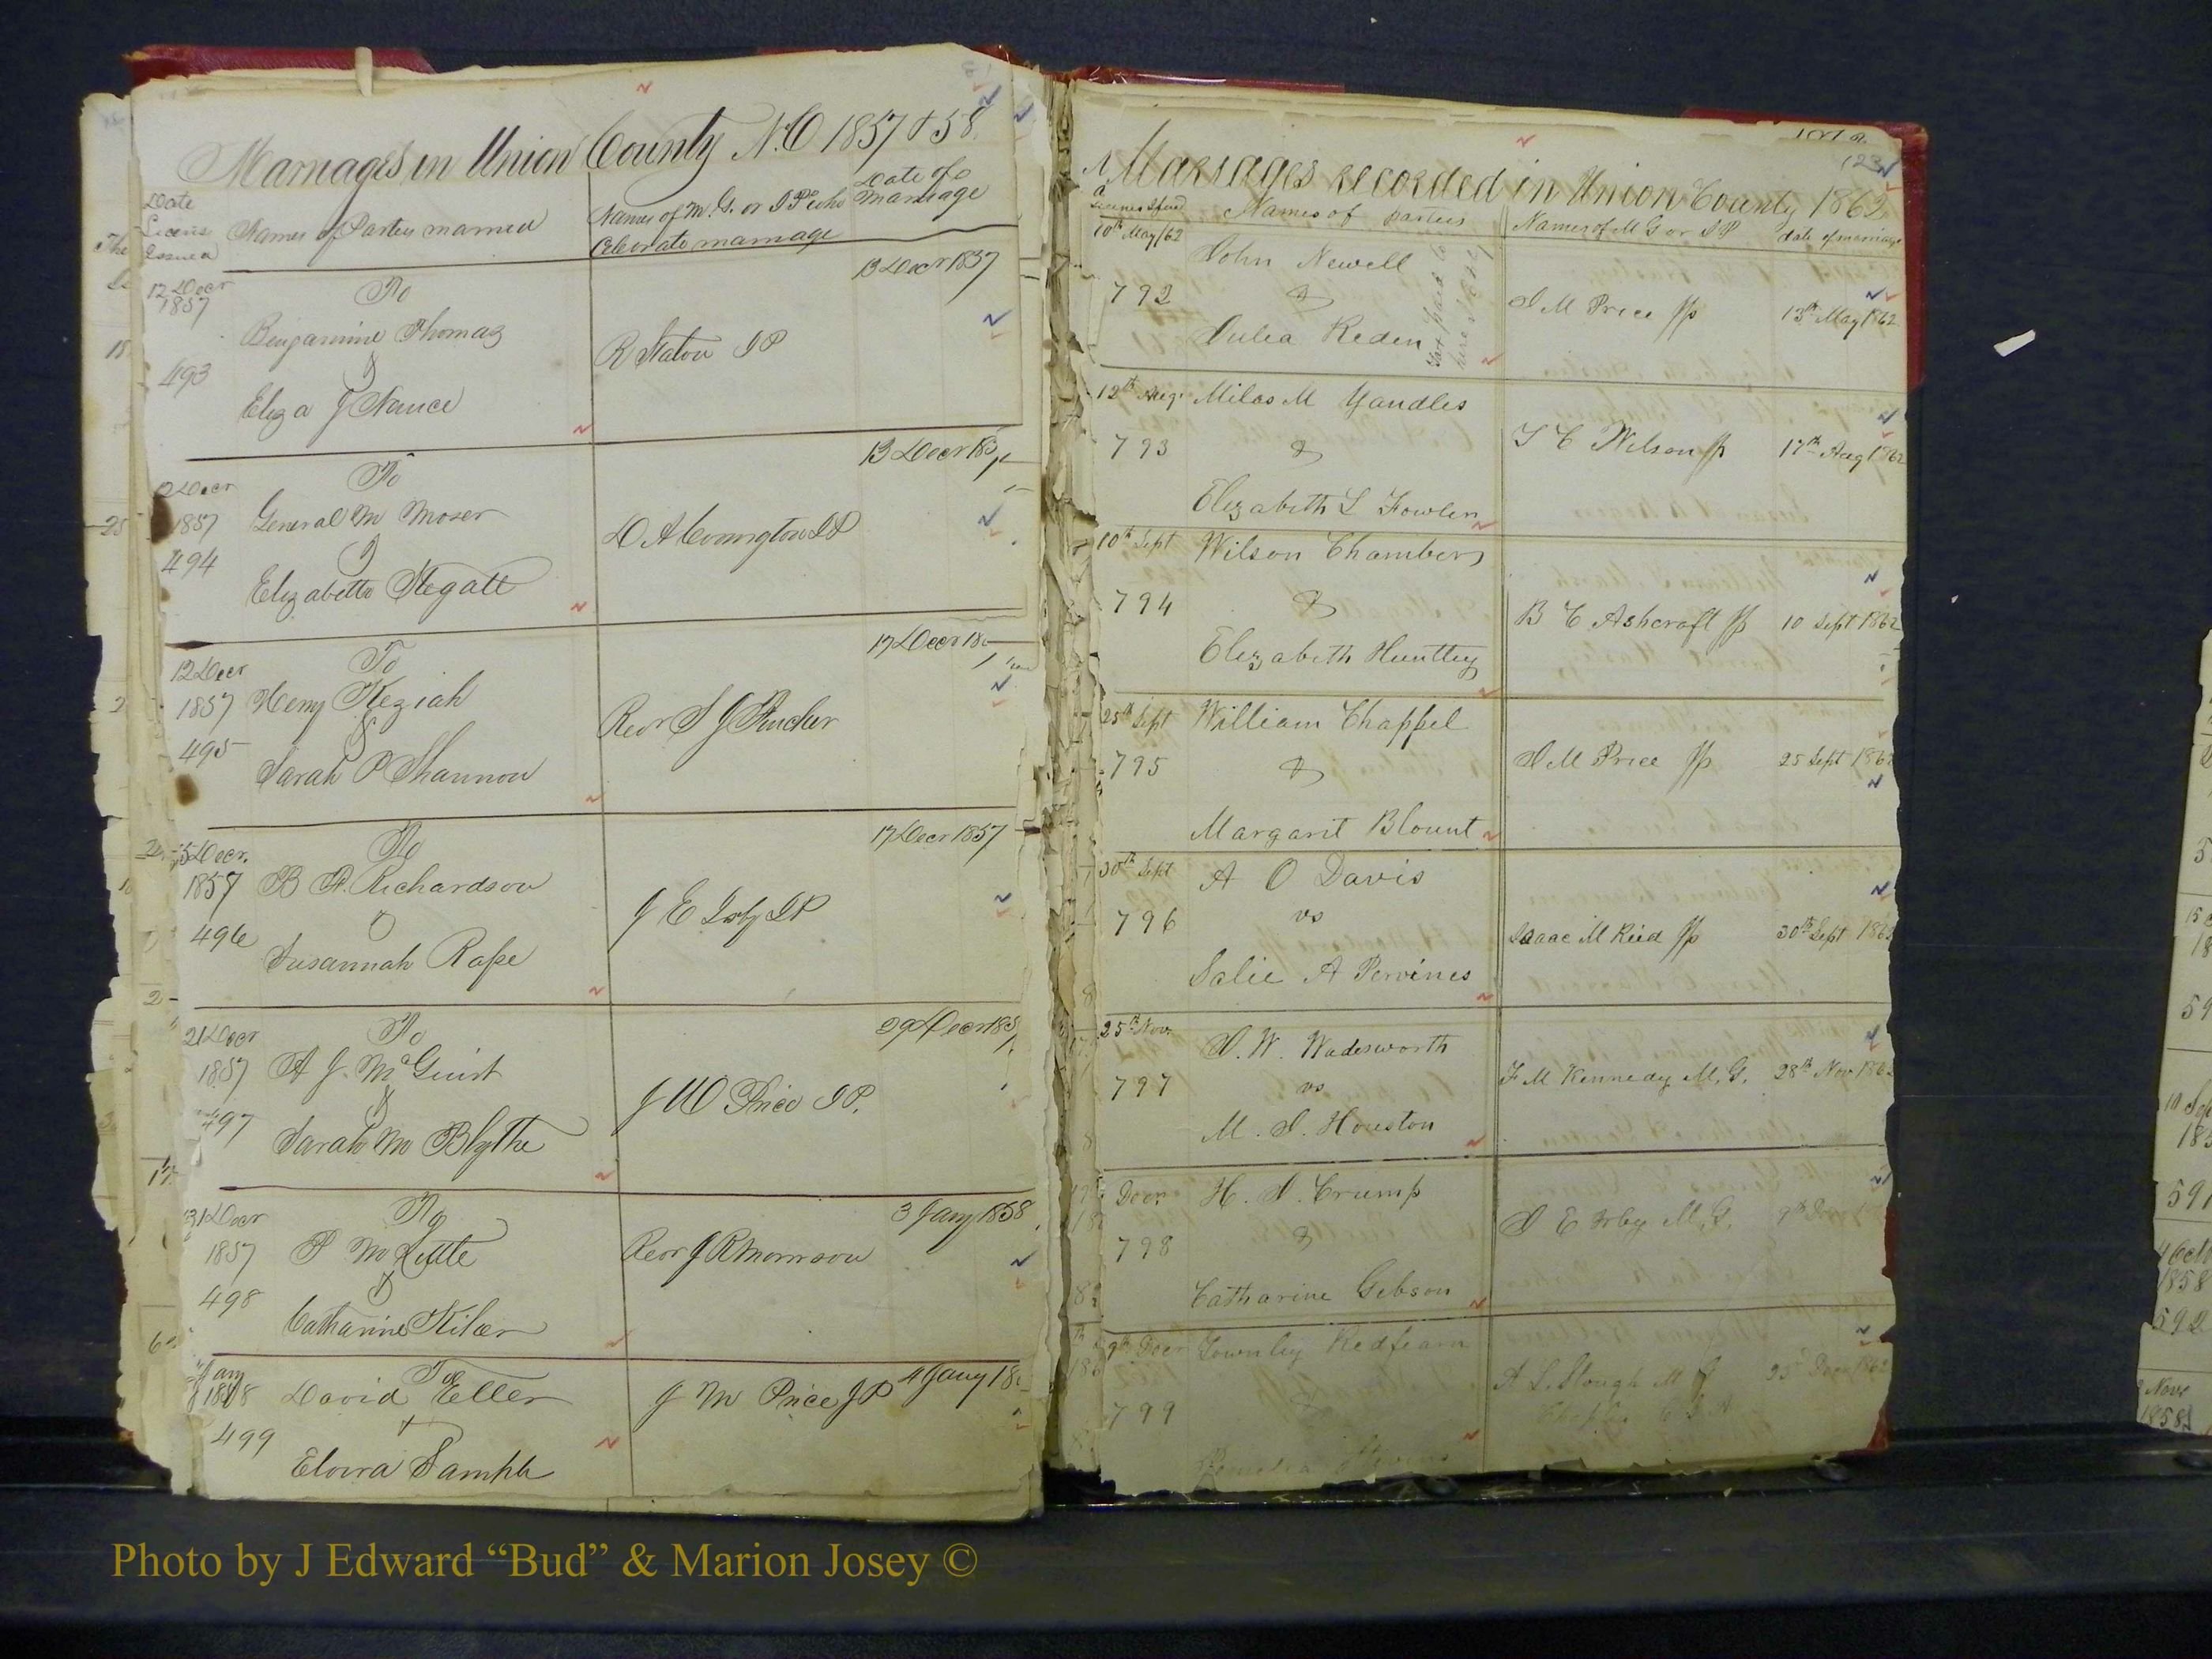 Marriages in Union County N.C 1857 & 58
Date
Licens
Issued
Names of Parties married
Names of M.G. or J P who
Celebrate marriage
Date of
marriage
12 Decr
1857
493
To
Benjamine Thomas
&
Eliza J Nance
R Staton J P
13 Decr 1857
12 Decr
1857
494
To
General M Moser
&
Elizabeth Stegall
D A Covington J P
13 Decr 185
12 Decr
1857
495
To
Henry Keziah
&
Sarah P Shannon
Revr
17 Decr 18
15 Decr.
1857
496
To
B A Richardson
&
Susannah Rape
J E Irby J P
17 Decr 1857
21 Decr
1857
497
To
A J. McGuirt
&
Sarah M Blythe
Price J P.
29 Decr 185
31 Decr
1857
498
To
P M Little
&
Catharine Kiker
Revr J R Morrison
3 Jany 1858
Jany
1858
499
To
David Eller
&
Elvira Sample
J M Price J P
4 Jany 18
Marriages recorded in Union County 1862
Names of parties
Names of M G or J P
date of marriage
10th May/62
792
John Newell
&
Julia Reden
J M Price Jp
13th May 1862
12th Aug
793
Milas M Yandles
&
Elizabeth L Fowler
T C Wilson Jp
17th Aug 1862
10th Sept
794
Wilson Chambers
&
Elizabeth Huntley
B C Ashcraft Jp
10 Sept 1862
25th Sept
795
William Chappel
&
Margarit Blount
J M Price Jp
25 Sept 1862
30th Sept
796
A O Davis
vs
Salie A Pervines
Isaac M Reid Jp
30th Sept 1862
25th Nov
797
J. W. Wadesworth
vs
M. J. Houston
F M Kennedy M. G.
28th Nov 1862
Decr
798
H. J. Crump
&
Catharine Gibson
J E Irby M. G.
9th Decr
9th Decr
1862
799
Townley Redfearn
&
A L. Stough M G
25 Decr 1862
Photo by J Edward “Bud” & Marion Josey ©